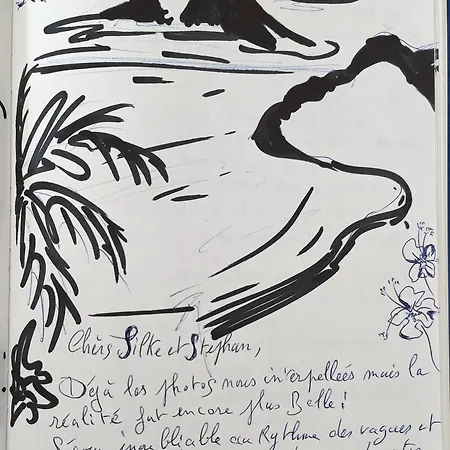 Chèrs Silke et Stephan,
Déjà les photos nous interpellées mais la
réalité fut encore plus Belle !
Séjour inoubliable au Rythme des vagues et